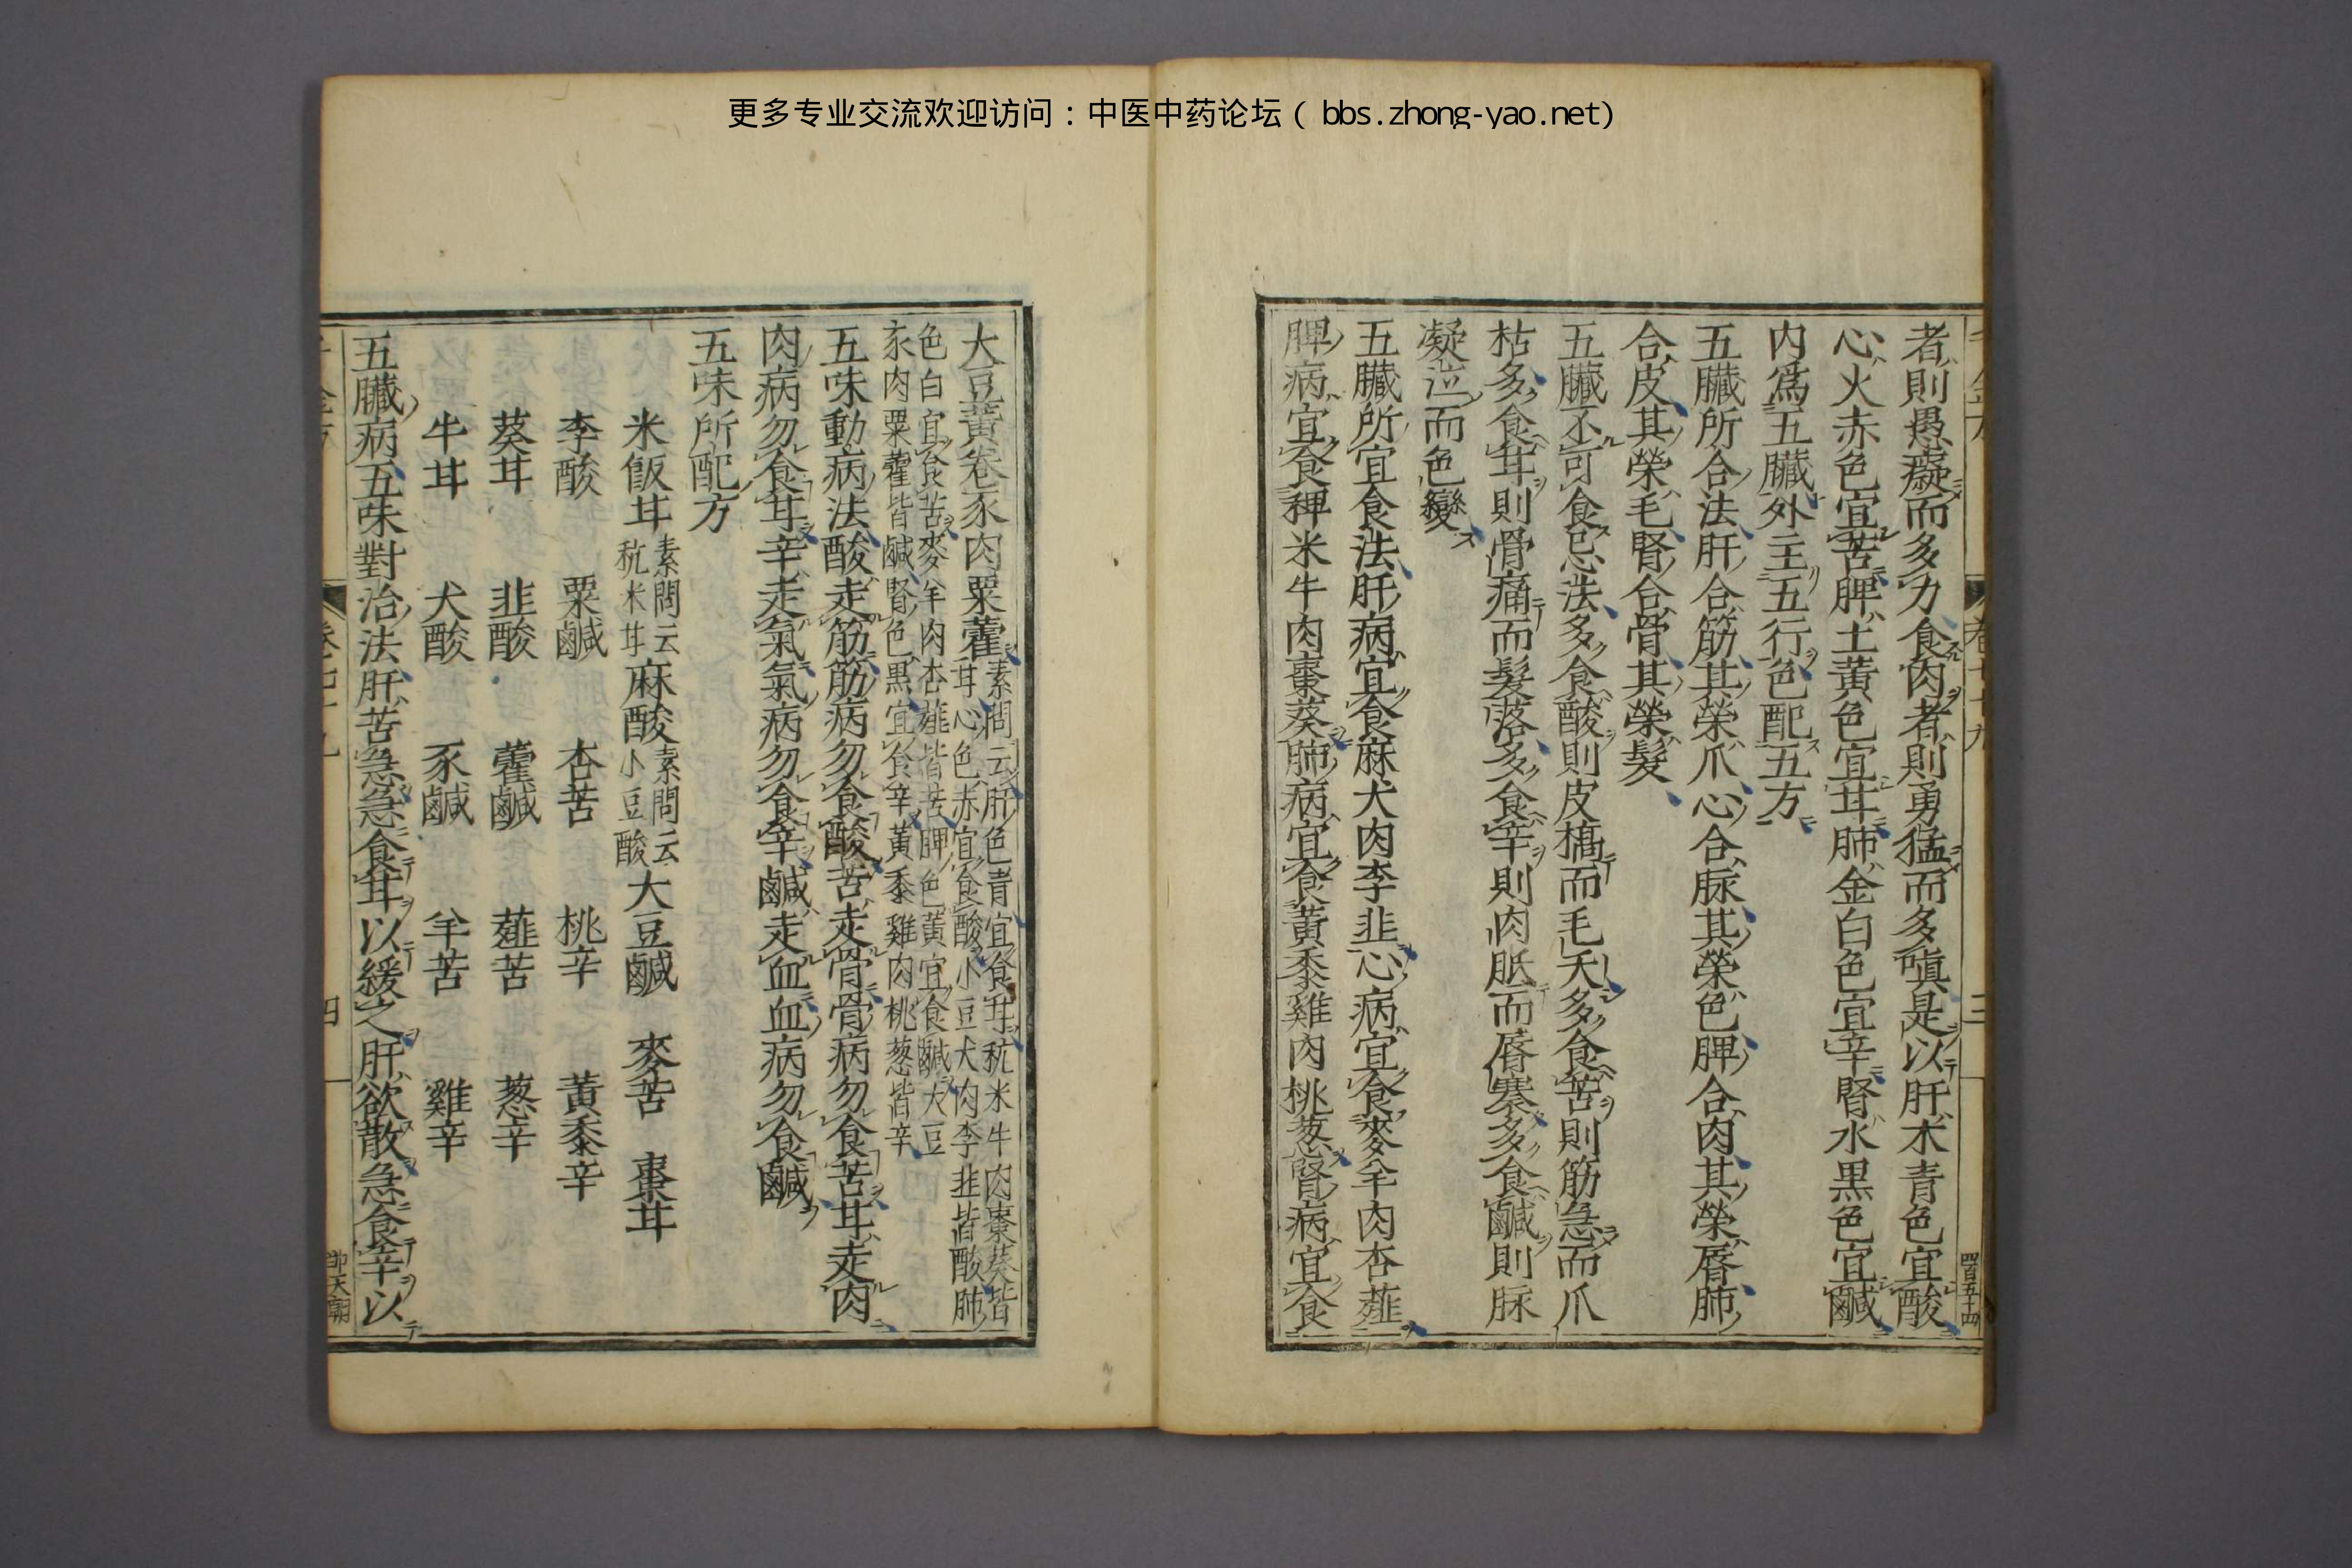 更多专业交流欢迎访问：中医中药论坛（ bbs.zhong-yao.net)
者則愚癡而多力食肉者則勇猛而多嗔是以肝木青色宜酸
心火赤色宜苦脾土黃色宜甘肺金白色宜辛腎水黒色宜鹹
内爲五臟外主五行色配五方
五臟所合法肝合筋其榮爪心合脉其榮色脾合肉其榮唇肺
合皮其榮毛腎合骨其榮髮
五臟不可食忌法多食酸則皮槁而毛夭多食苦則筋急而爪
枯多食甘則骨痛而髮落多食辛則肉胝而唇寨多食鹹則脉
凝泣而色變
五臟所宜食法肝病宜食麻犬肉李韭心病宜食麥羊肉杏薤
脾病宜食稗米牛肉棗葵肺病宜食黃黍雞肉桃葱腎病宜食
大豆黃卷豕肉粟藿
素問云肝色青宜食甘秔米牛肉棗葵皆
甘心色赤宜食酸小豆犬肉李韭皆酸肺
色白宜食苦麥羊肉杏薤皆苦脾色黃宜食鹹大豆
豕肉粟藿皆鹹腎色黒宜食辛黃黍雞肉桃葱皆辛
五味動病法酸走筋筋病勿食酸苦走骨骨病勿食苦甘走肉
肉病勿食甘辛走氣氣病勿食辛鹹走血血病勿食鹹
五味所配方
米飯甘素問云秔米甘麻酸素問云小豆酸大豆鹹 麥苦 棗甘
李酸 粟鹹 杏苦 桃辛 黃黍辛
葵甘 韭酸 藿鹹 薤苦 葱辛
牛甘 犬酸 豕鹹 羊苦 雞辛
五臟病五味對治法肝苦急急食甘以緩之肝欲散急食辛以
四